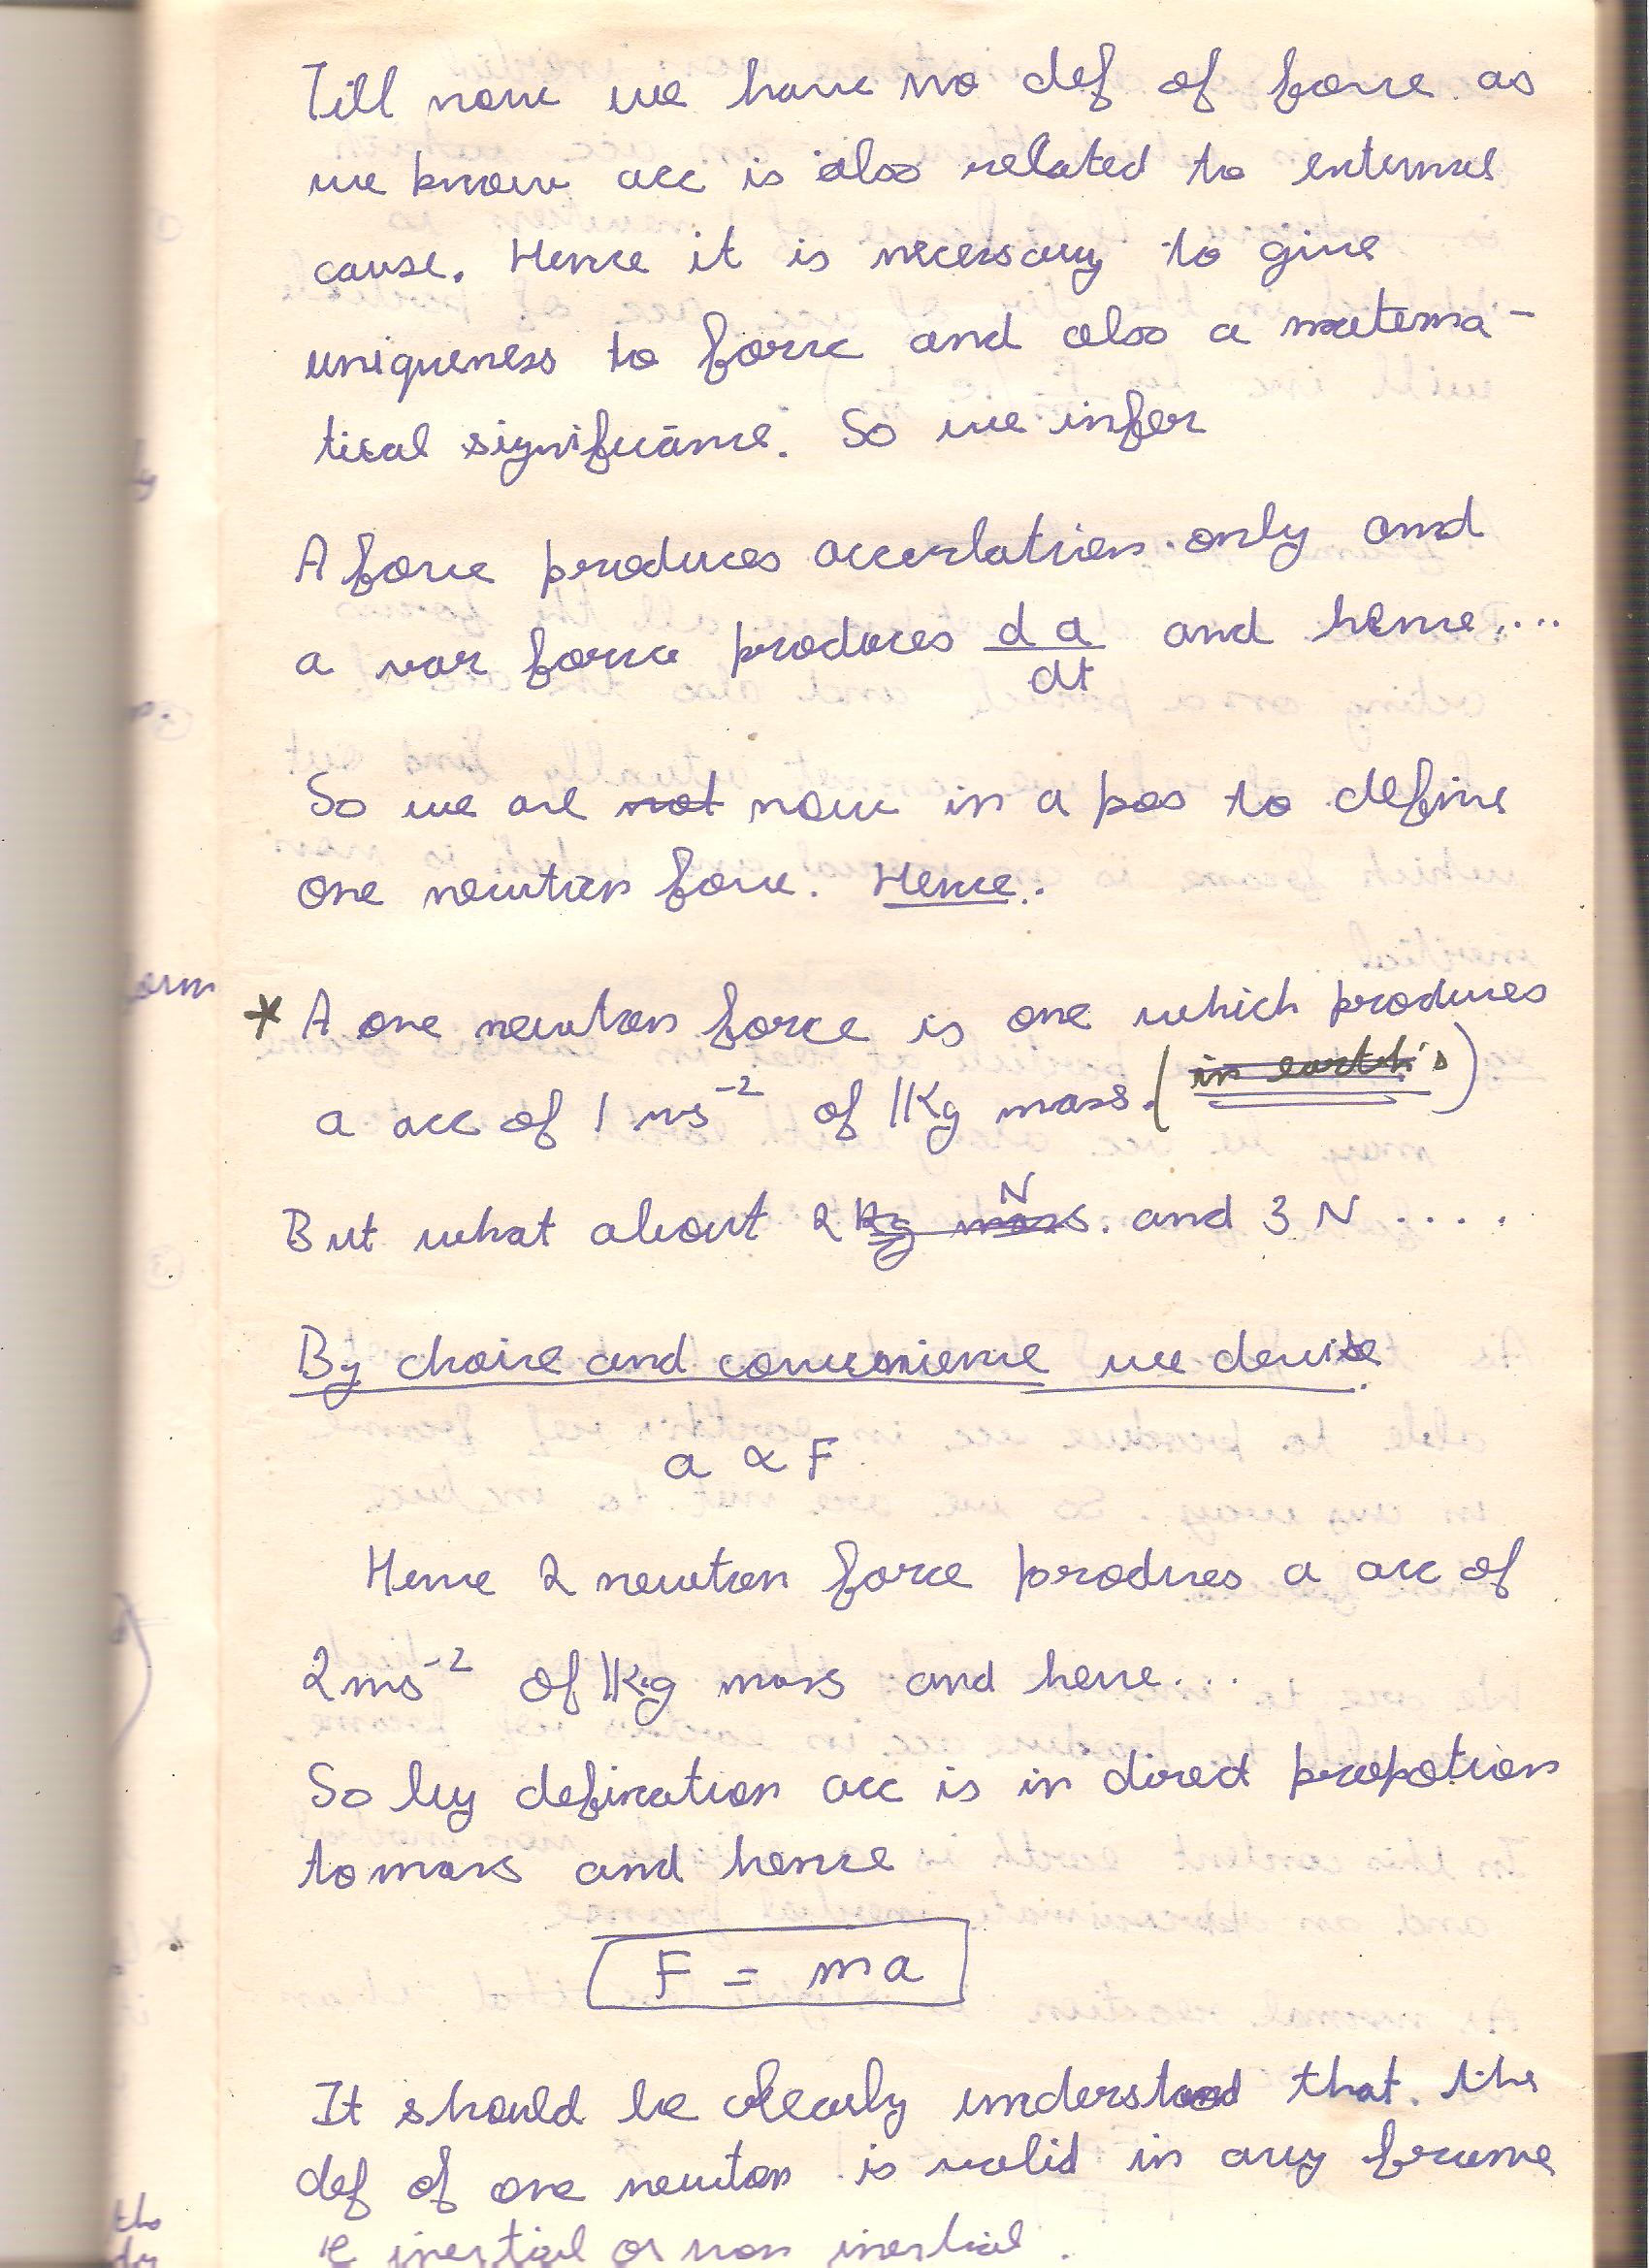 Till now we have no def of force as
we know acc is also related to external
cause. Hence it is necessary to give
uniqueness to force and also a matema-
tical significance. So we infer
A force produces accerlation only and
a var force produces da/dt and hence...
So we are not now in a pos to define
one newton force. Hence.
* A one newton force is one which produces
a acc of 1 ms⁻² of 1Kg mass. (in earth's)
But what about 2 Kg mass. N and 3 N ....
By choice and convenience we devise
a ∝ F
Hence 2 newton force produces a acc of
2ms⁻² of 1Kg mass and hence...
So by defination acc is in direct propotion
to mass and hence
F = ma
It should be clearly understood that the
def of one newton is valid in any frame
ie inertial or non inertial.